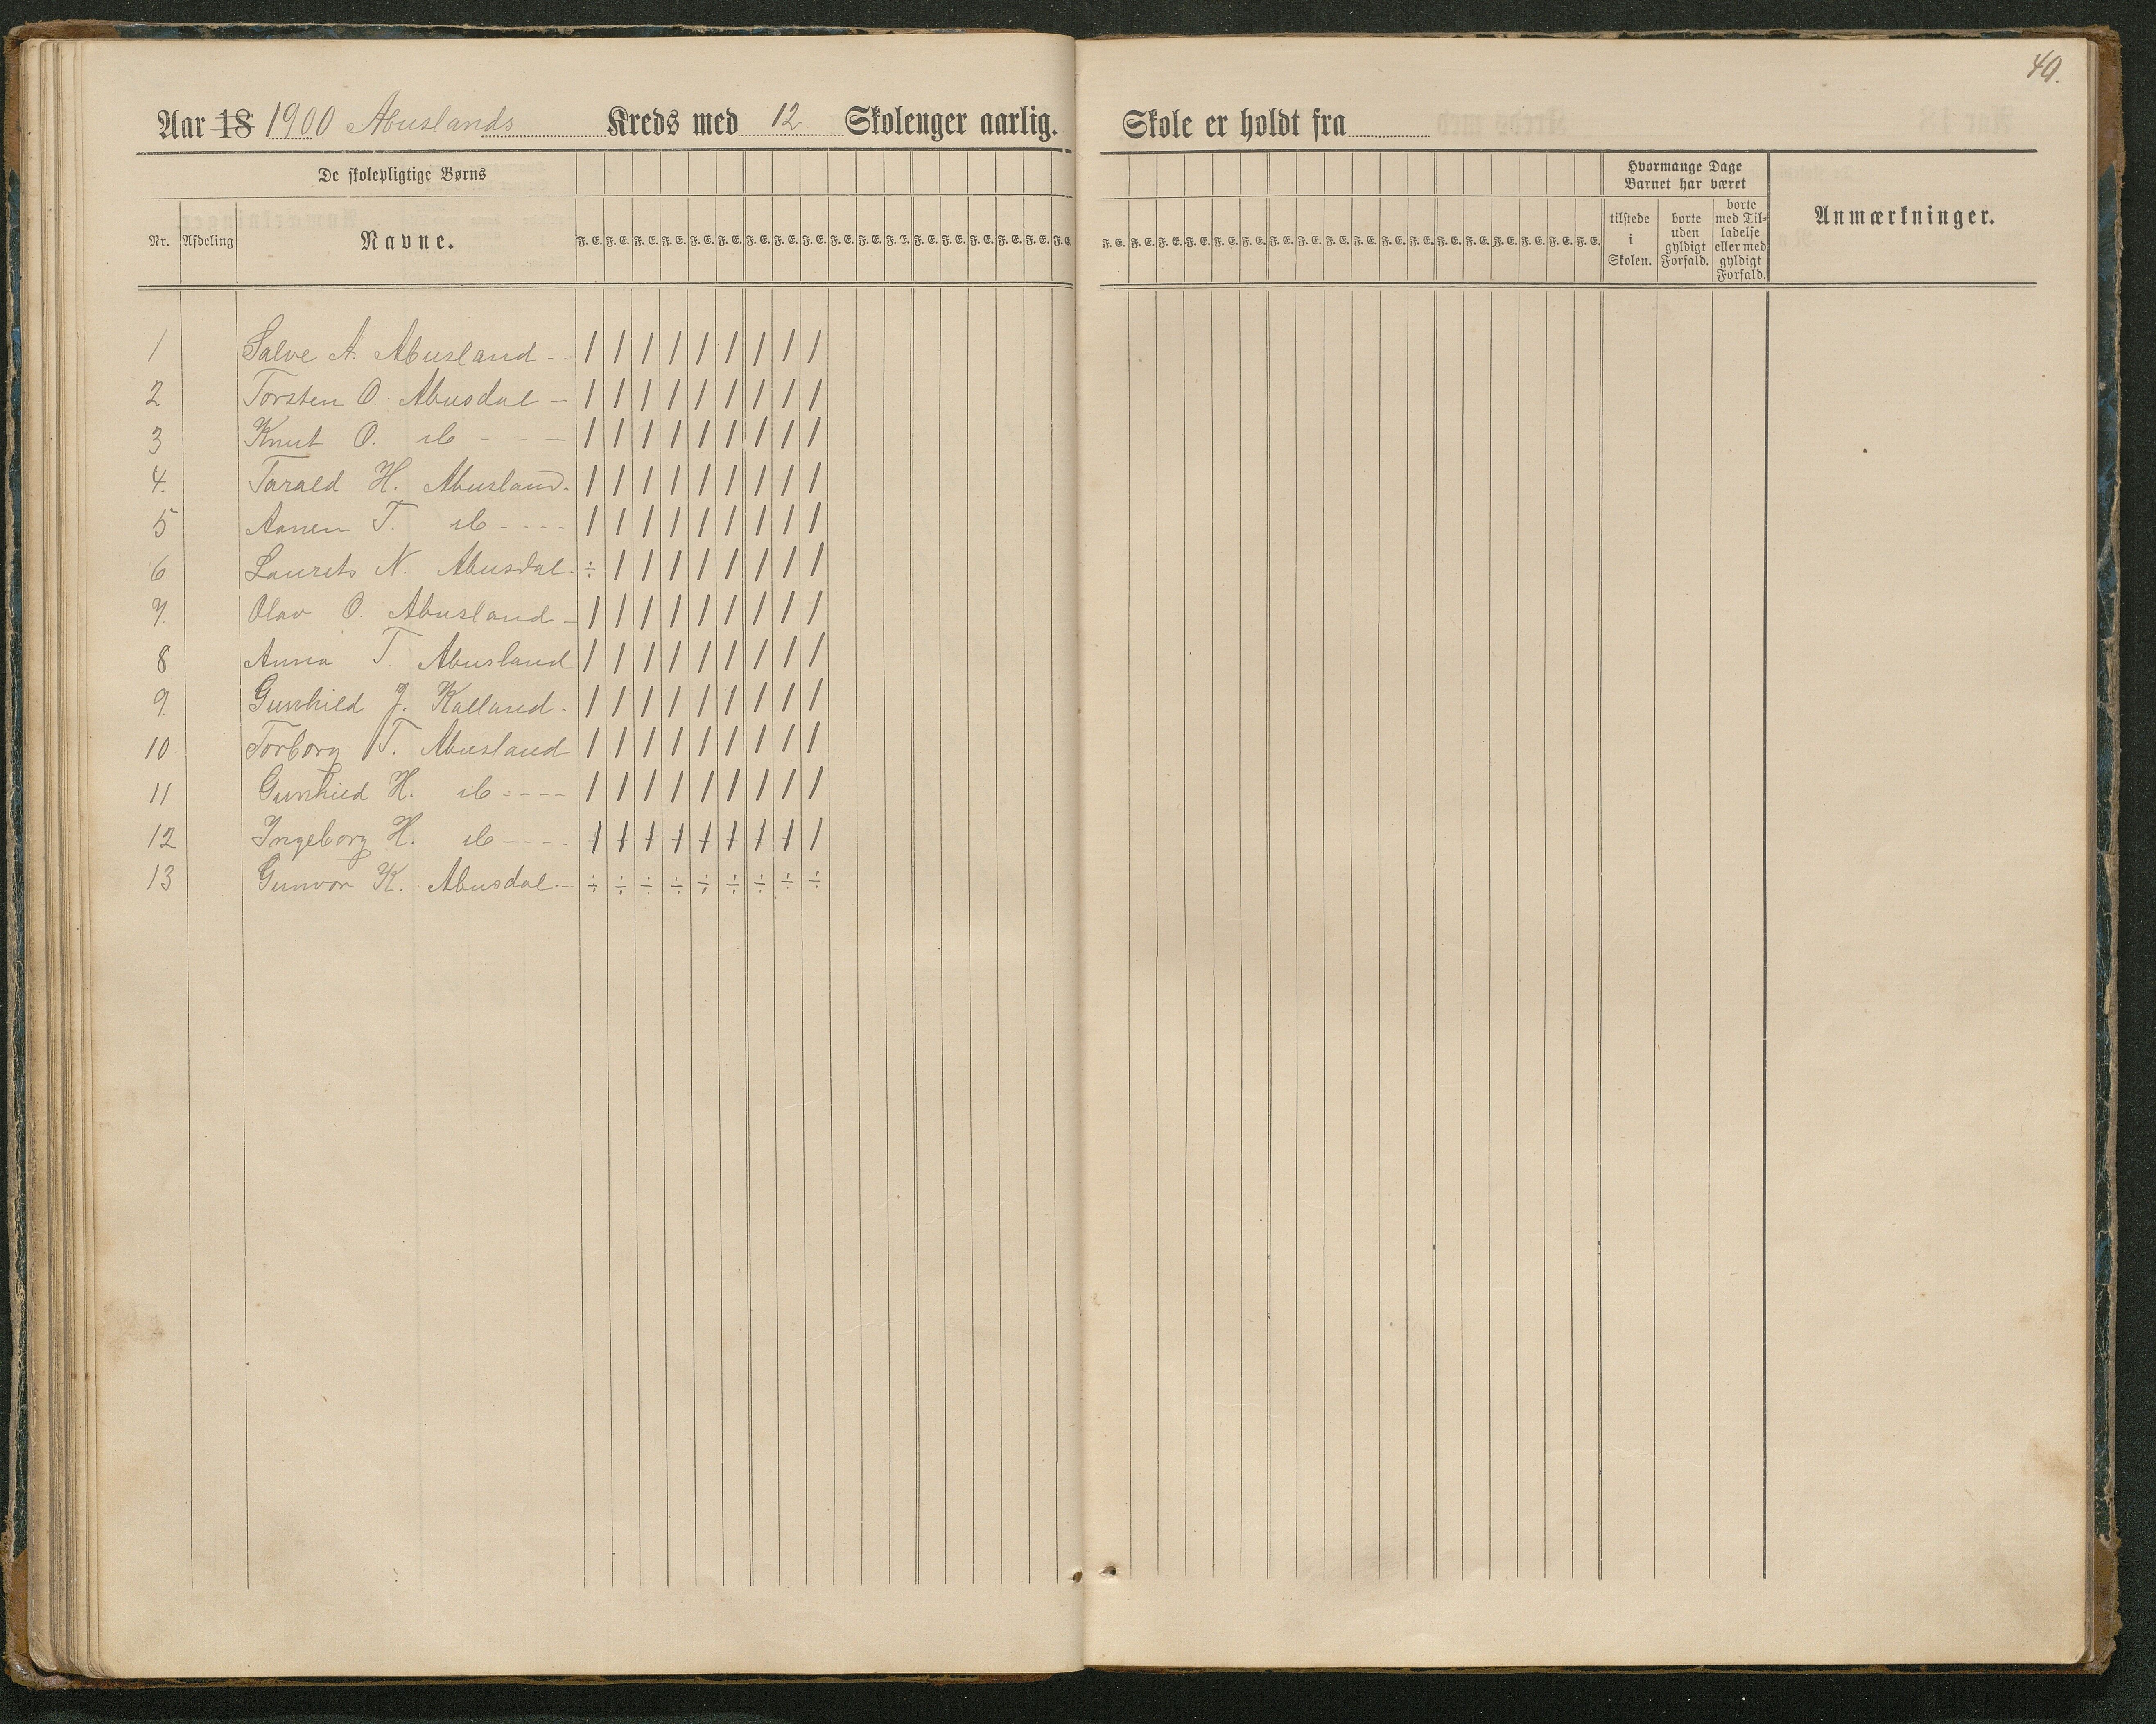 40.
Aar 18 1900 Abuslands Kreds med 12 Skolenger aarlig. Skole er holdt fra
De skolepligtige Børns
Nr. Afdeling Navne. F. E. F. E. F. E. F. E. F. E. F. E. F. E. F. E. F. E. F. E. F. E. F. E. F. E. F. E. F. E. F. E. F. E. F. E.
F. E. F. E. F. E. F. E. F. E. F. E. F. E. F. E. F. E. F. E. F. E. F. E. F. E. F. E. F. E. F. E. F. E. F. E.
Hvormange Dage
Barnet har været
tilstede
i
Skolen.
borte
uden
gyldigt
Forfald.
borte
med Til-
ladelse
eller med
gyldigt
Forfald.
Anmærkninger.
1 Salve A. Abusland -- / / / / / / / / /
2 Torsten O. Abusdal -- / / / / / / / / /
3 Knut O. ib - - - / / / / / / / / /
4. Tarald H. Abusland. / / / / / / / / /
5 Aanen T. ib ---- / / / / / / / / /
6. Laurits N. Abusdal. ÷ / / / / / / / /
7. Olav O. Abusland - / / / / / / / / /
8 Anna T. Abusland / / / / / / / / /
9. Gunhild J. Kalland - / / / / / / / / /
10 Torborg T. Abusland / / / / / / / / /
11 Gunhild H. ib ---- / / / / / / / / /
12 Ingeborg H. ib ---- / / / / / / / / /
13 Gunvor K. Abusdal -- ÷ ÷ ÷ ÷ ÷ ÷ ÷ ÷ ÷